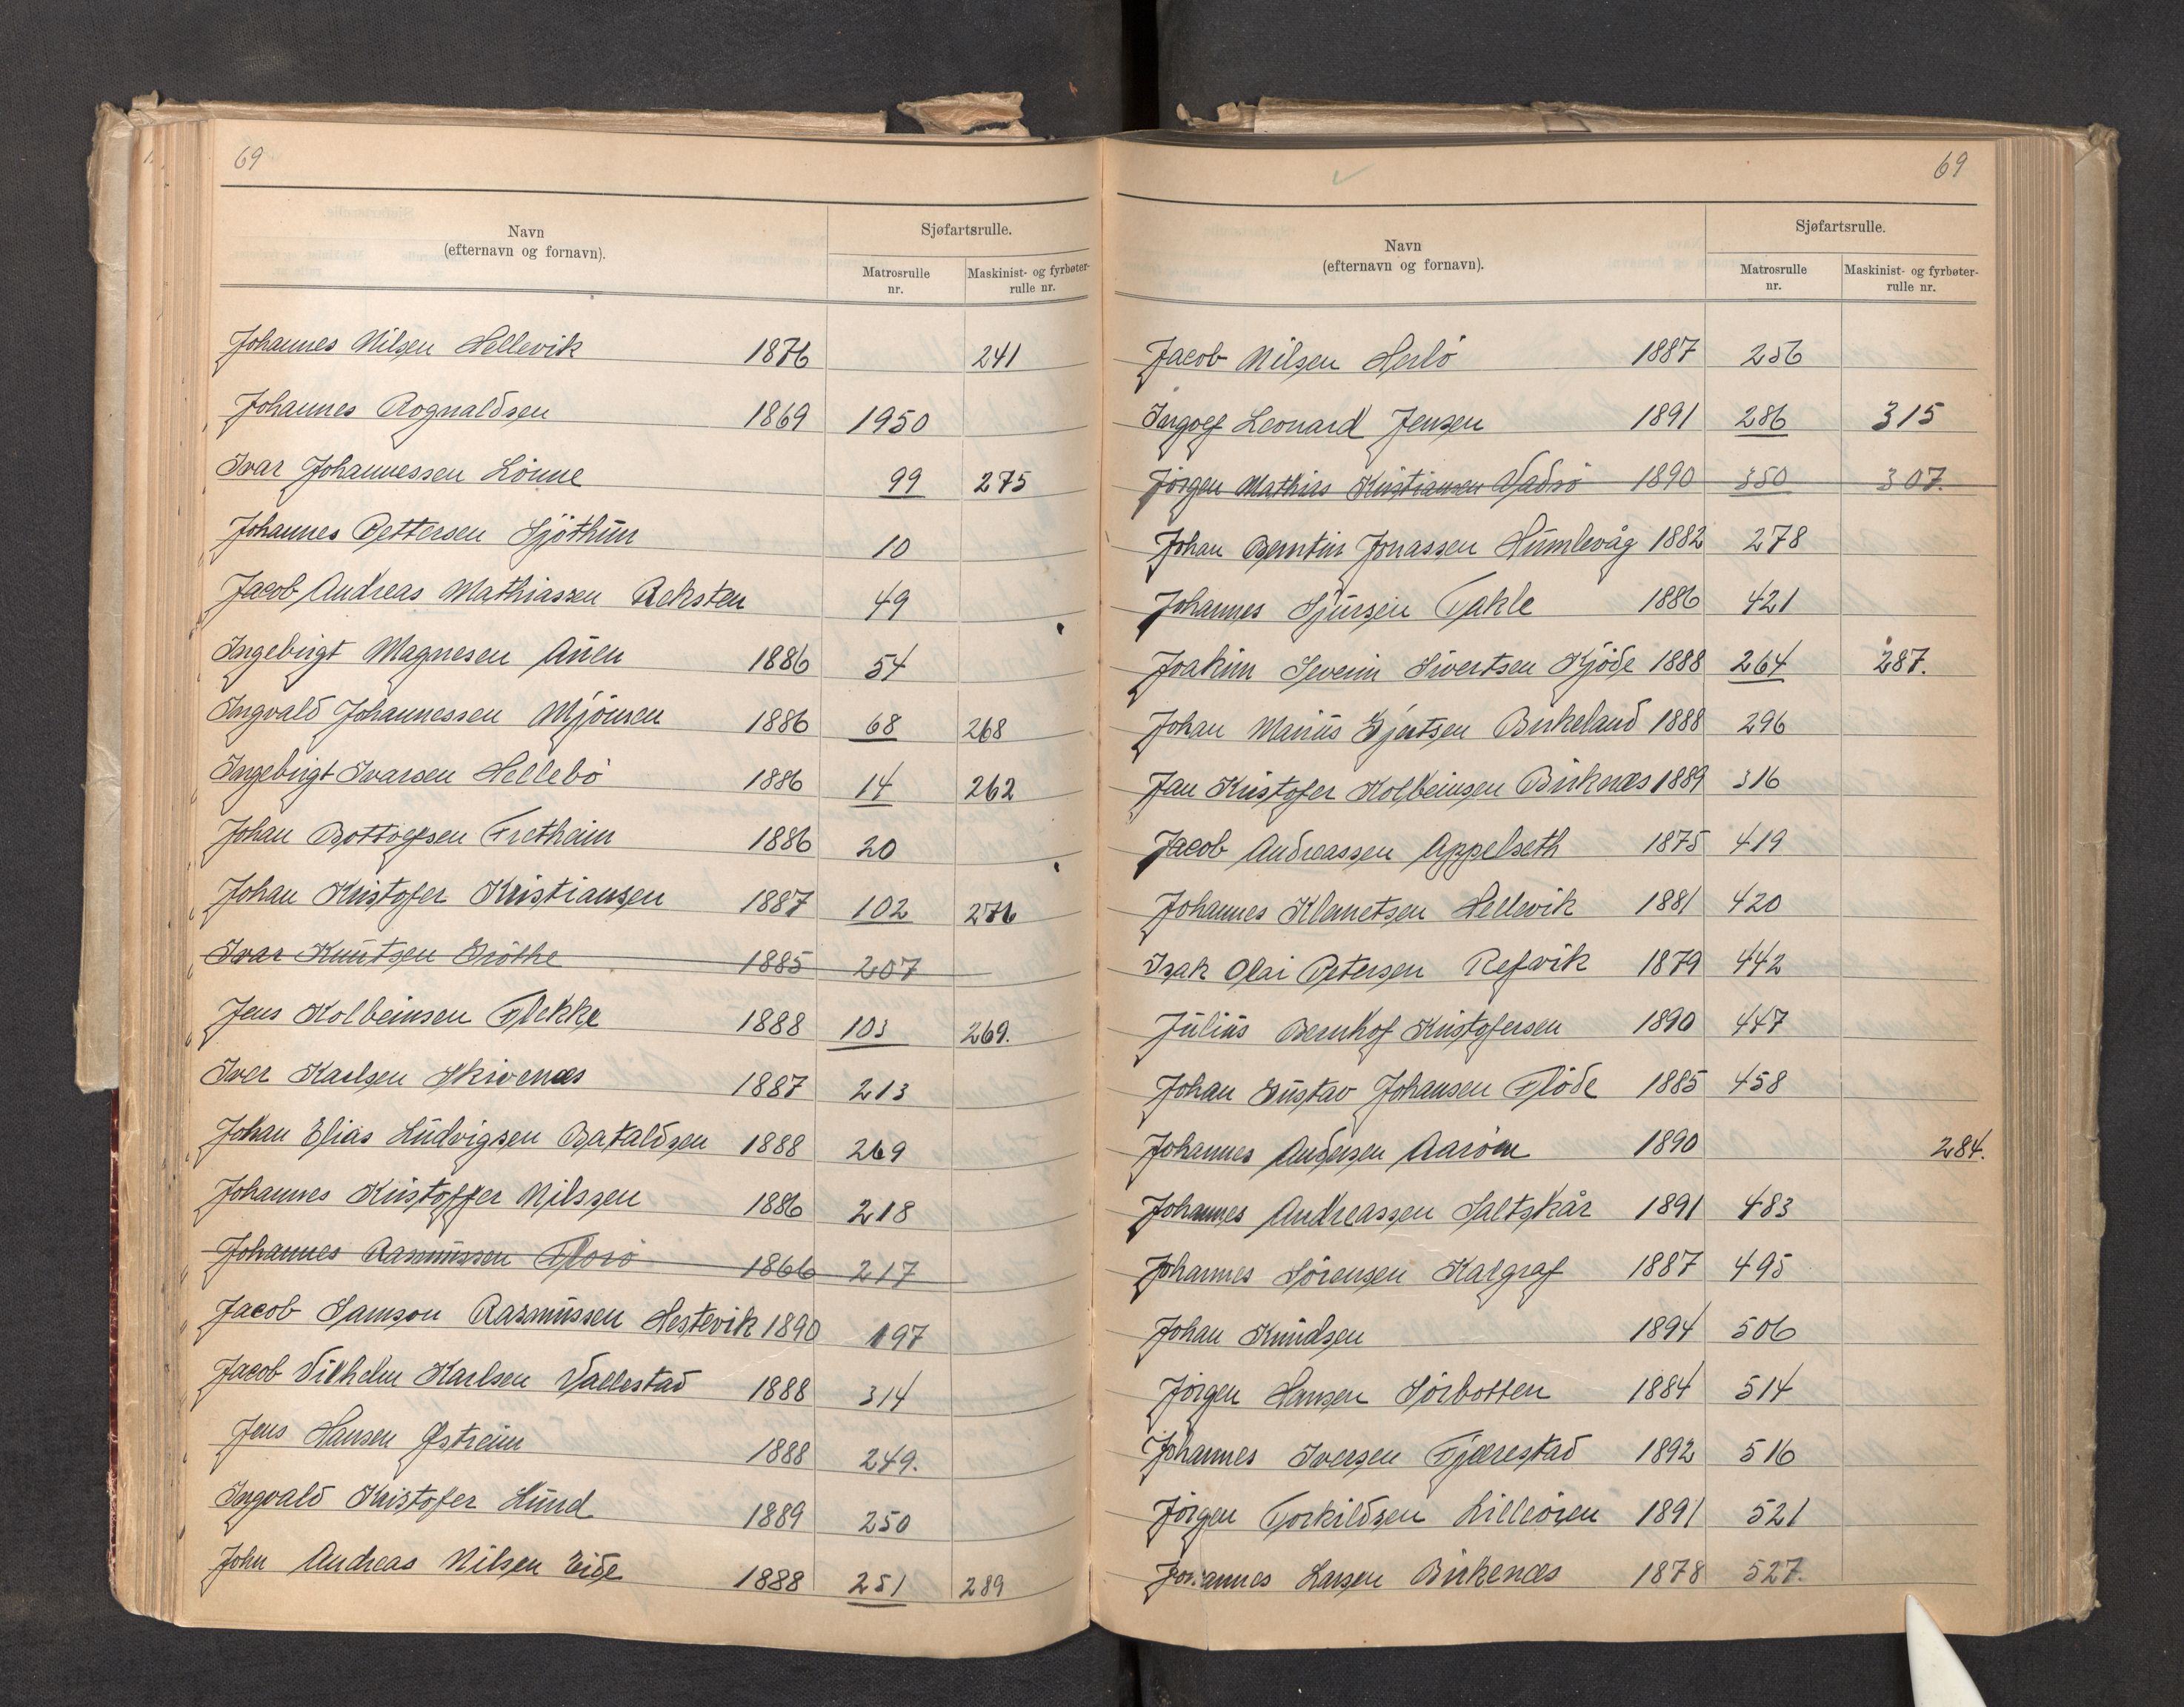 69
Navn
(efternavn og fornavn).
Sjøfartsrulle.
Matrosrulle
nr.
Maskinist- og fyrbøter-
rulle nr.
Johannes Nilsen Hellevik 1876 241
Johannes Rognaldsen 1869 1950
Ivar Johannessen Lönne 99 275
Johannes Pettersen Sjöthun 10
Jacob Andreas Mathiassen Reksten 49
Ingebrigt Magnesen Auen 1886 54
Ingvald Johannessen Mjömen 1886 68 268
Ingebrigt Ivarsen Hellebö 1886 14 262
Johan Bottolfsen Fretheim 1886 20
Johan Kristofer Kristiansen 1887 102 276
Ivar Knutsen Gröthe 1885 207
Jens Kolbeinsen Flekke 1888 103 269.
Iver Karlsen Skivenæs 1887 213
Johan Elias Ludvigsen Bataldsen 1888 269
Johannes Kristoffer Nilssen 1886 218
Johannes Rasmussen Florö 1866 217
Jacob Samson Rasmussen Hestevik 1890 197
Jacob Vilhelm Karlsen Vallestad 1888 314
Jens Hansen Østreim 1888 249.
Ingvald Kristofer Hund 1889 250
John Andreas Nilsen Eide 1888 251 289
69
Navn
(efternavn og fornavn).
Sjøfartsrulle.
Matrosrulle
nr.
Maskinist- og fyrbøter-
rulle nr.
Jacob Nilsen Herlö 1887 256
Ingolf Leonard Jensen 1891 286 315
Jörgen Mathias Kristiansen Vadsö 1890 350 307.
Johan Berntin Jonassen Humlevåg 1882 278
Johannes Sjursen Takle 1886 421
Joakim Severin Sivertsen Kjöde 1888 264 287.
Johan Marius Gjertsen Birkeland 1888 296
Jan Kristofer Kolbeinsen Birknæs 1889 316
Jacob Andreassen Appelseth 1875 419
Johannes Klemetsen Hellevik 1881 420
Isak Olai Petersen Refvik 1879 442
Julius Bernhof Kristofersen 1890 447
Johan Gustav Johansen Flöde 1885 458
Johannes Andersen Aaröen 1890 284.
Johannes Andreassen Saltskår 1891 483
Johannes Sörensen Kalgraf 1887 495
Johan Knudsen 1894 506
Jörgen Hansen Sörbotten 1884 514
Johannes Iversen Fjærestad 1892 516
Jörgen Torkildsen Lilleören 1891 521
Johannes Larsen Birkenæs 1878 527.